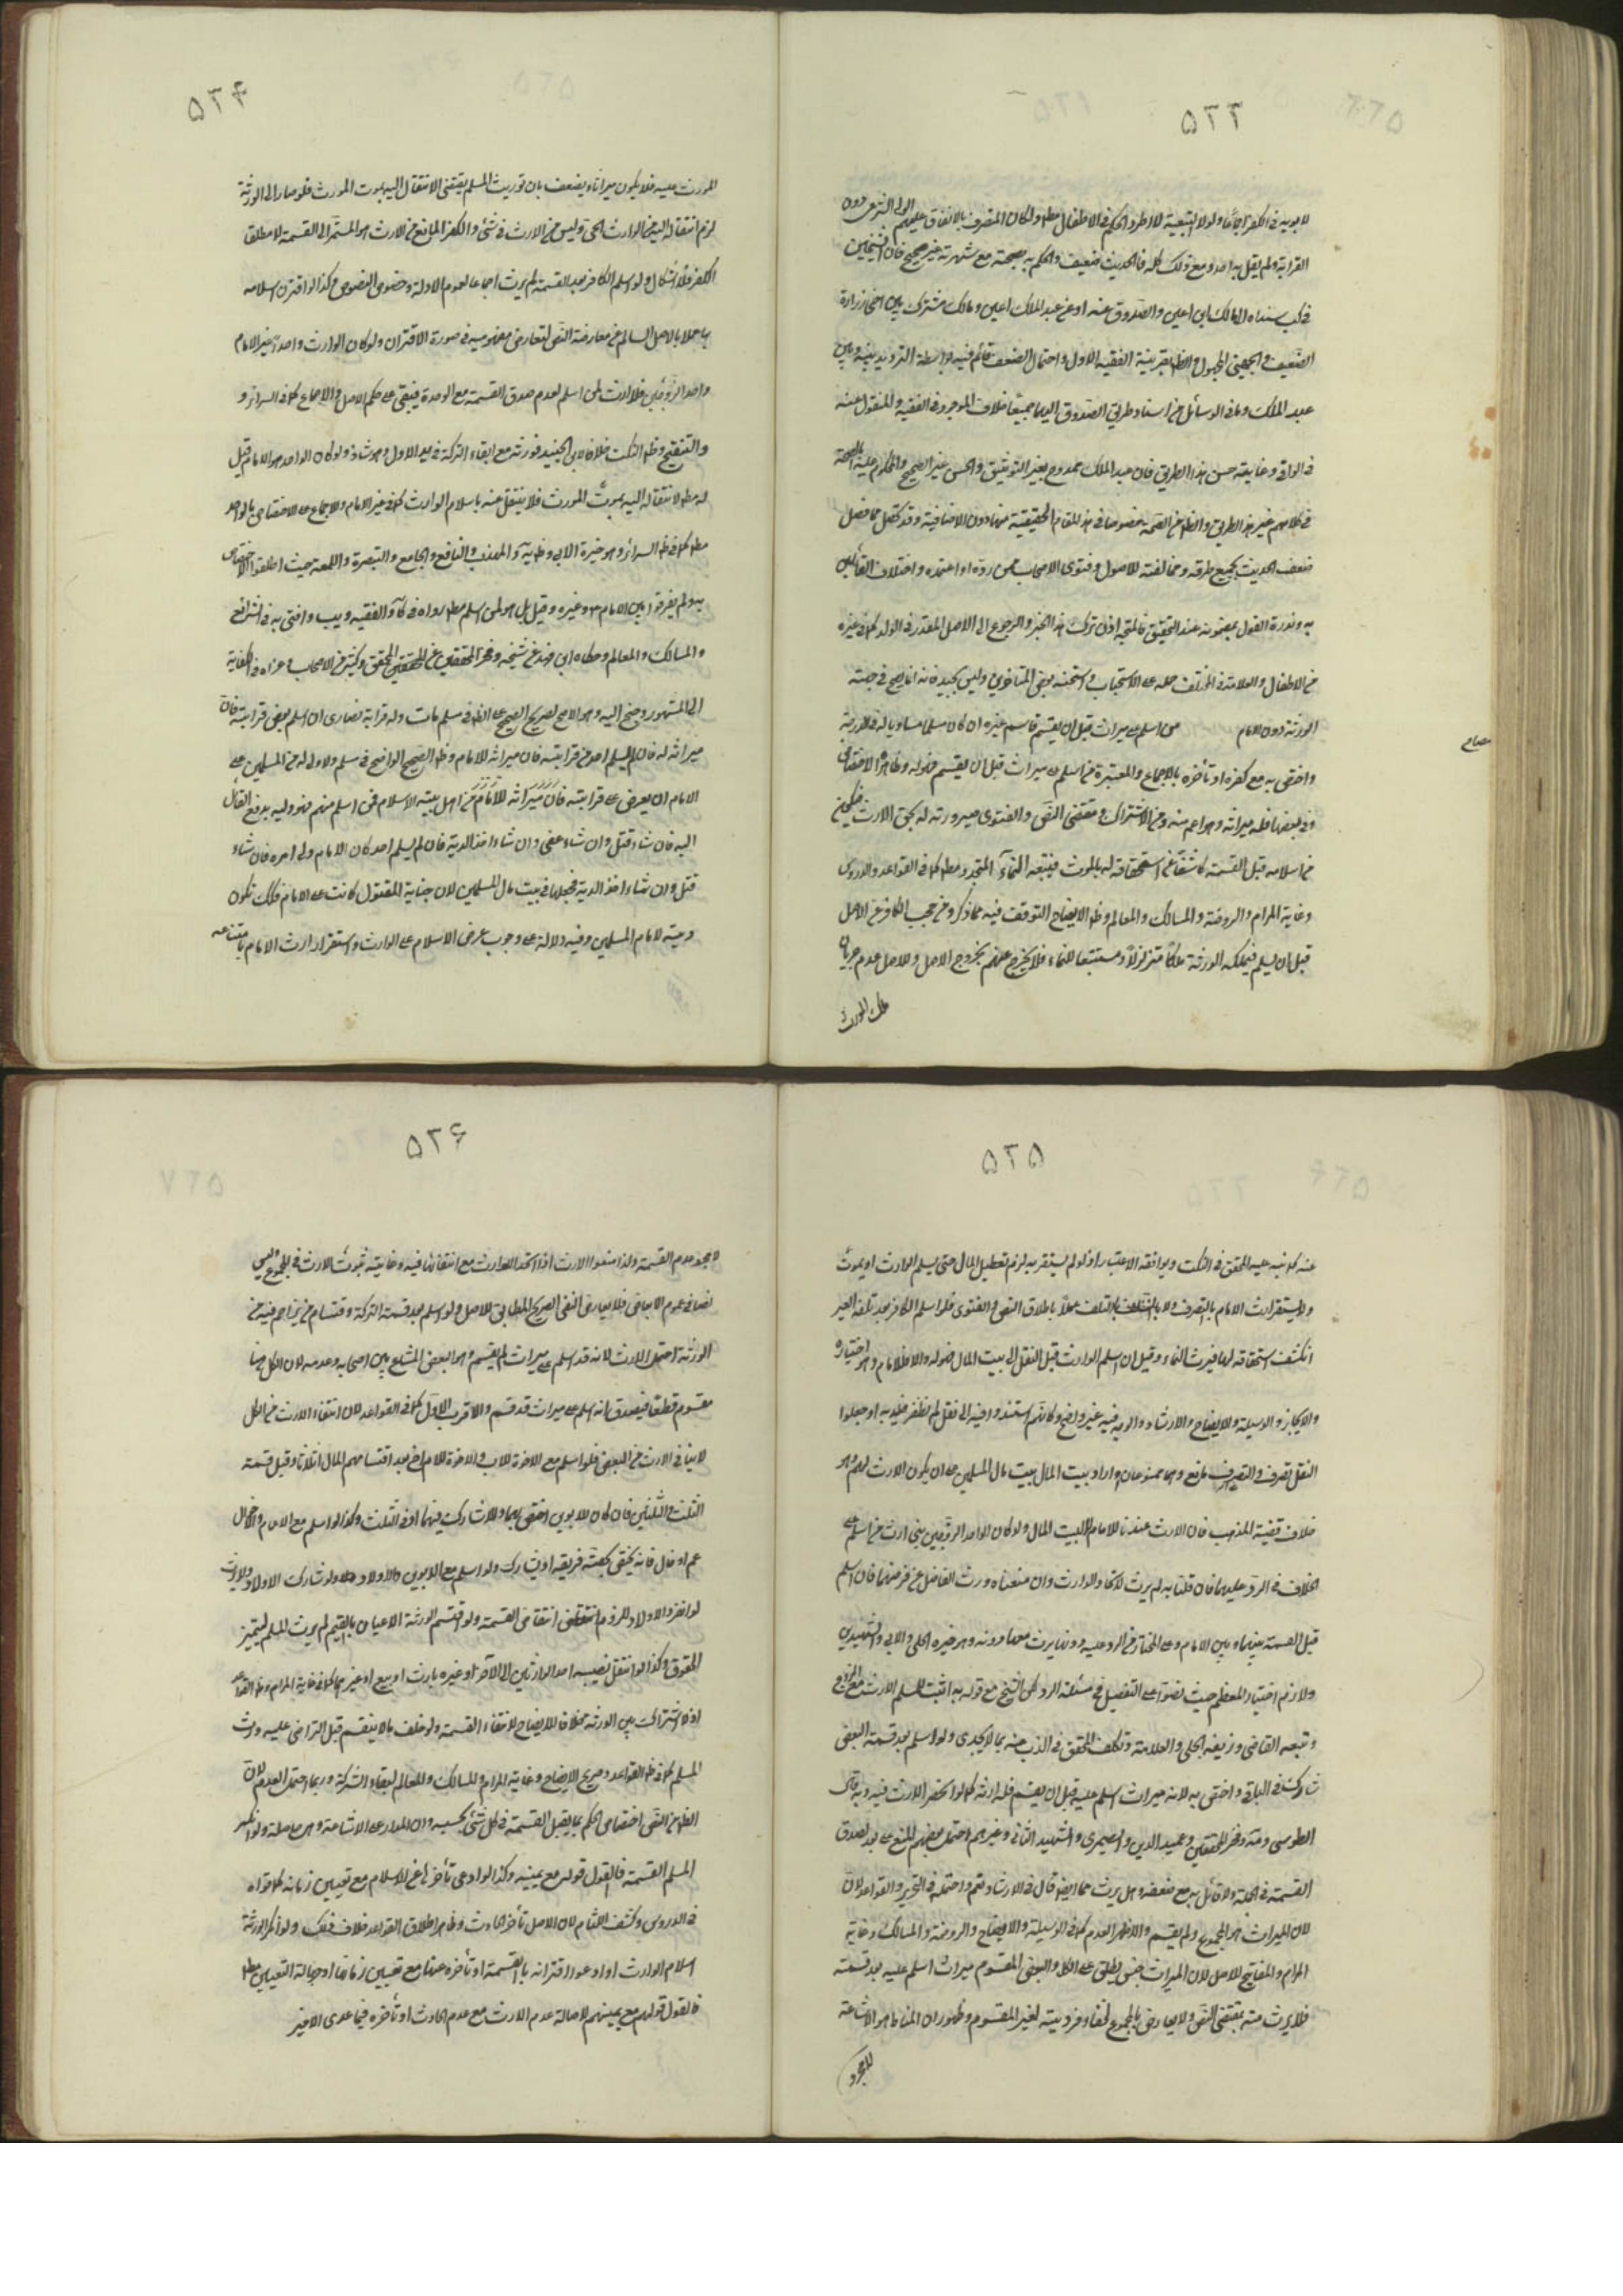 ٥٢٣
لابويه في الكفر اجماعا ولولا التبعية لاطرد الحكم في الاطفال مطلقا ولكان المتصرف بالانفاق عليهم الولي الشرعي دون
القرابة ولم يقل به احد ومع ذلك كله فالحديث ضعيف والحكم بصحته مع شهرته غير صحيح فان الشيخين
في كب سنداه الى مالك ابن اعين والصدوق عنه او عن عبد الملك اعين ومالك مشترك بين اخي زرارة
الضعيف والجهني المجهول والظ بقرينة الفقيه الاول واحتمال الضعف قائم فيه بواسطة الترديد بينه وبين
عبد الملك وما في الوسائل من اسناد طريق الصدوق اليهما جميعا خلاف الموجود في الفقيه والمنقول عنه
في الوافي وغايته حسن هذا الطريق فان عبد الملك ممدوح بغير التوثيق والحسن غير الصحيح والمحكوم عليه بالصحة
في كلامهم غير هذا الطريق والظ من الصحة خصوصا في هذا المقام الحقيقية منها دون الاضافية وقد تحصل مما فصل
ضعف الحديث بجميع طرقه ومخالفته للاصول وفتوى الاصحاب ممن رده او اعتمده واختلاف القائلين
به وندرة القول بمضمونه عند التحقيق فالمتجه اذن ترك هذا الخبر والرجوع الى الاصل المقدر في الولد كما في غيره
من الاطفال والعلامة في المختلف حمله على الاستحباب واستحسنه بعض المتاخرين وليس بجيد فانه انما يصح في حصته
الورثة دون الامام من اسلم على ميراث قبل ان يقسم قاسم غيره ان كان مسلما مساويا له في المرتبة
مصباح
واختص به مع كفره او تأخره بالاجماع والمعتبرة من اسلم على ميراث قبل ان يقسم فهو له وظاهره الاختصاص
وفي بعضها فله ميراثه وهو اعم منه ومن الاشتراك ومقتضى النص والفتوى صيرورته له بحق الارث فيكون
من اسلامه قبل القسمة كاشفا عن استحقاقه له بالموت فيتبعه النماء المتجدد مطلقا كما في القواعد والدروس
وغاية المرام والروضة والمسالك والمعالم وظ الايضاح التوقف فيه مما ذكر ومن حجب الكافر عن الاصل
قبل ان يسلم فيملكه الورثة ملكا متزلزلا ومستتبعا للنماء فلا يخرج عنهم بخروج الاصل وللاصل عدم جريان
ملك المورث
٥٢۴
المورث عليه فلا يكون ميراثا ويضعف بان توريث المسلم يقتضي الانتقال اليه بموت المورث فلو صار الى الورثة
لزم انتقاله اليه من الوارث الحي وليس من الارث في شئ والكفر المانع من الارث هو المستمر الى القسمة لا مطلق
الكفر فلا اشكال ولو اسلم الكافر بعد القسمة لم يرث اجماعا لعموم الادلة وخصوص النصوص وكذا لو اقترن اسلامه
بها عملا بالاصل السالم عن معارضة النص لتعارض مفهوميه في صورة الاقتران ولو كان الوارث واحدا غير الامام
واحد الزوجين فلا ارث لمن اسلم لعدم صدق القسمة مع الوحدة فيبقى على حكم الاصل والاجماع كما في السرائر و
والتنقيح وظ النكت خلافا لابن الجنيد فورثه مع ابقاء التركة في يد الاول وهو شاذ ولو كان الواحد هو الامام قيل
له مطلقا لانتقاله اليه بموت المورث فلا ينتقل عنه باسلام الوارث كما في غير الامام والاجماع على الاختصاص بالواحد
مطلقا كما في ظ السرائر وهو خيرة الابي وظ ية والمهذب والنافع والجامع والتبصرة واللمعة حيث اطلقوا الاختصاص
به ولم يفرقوا بين الامام وغيره وقيل بل هو لمن اسلم مطلقا رواه في كا والفقيه ويب وافتى به في الشرائع
والمسالك والمعالم وحكاه ابن فهد عن شيخه وفخر المحققين عن المحقق وكثير من الاصحاب وعزاه في الكفاية
الى المشهور وجنح اليه وهو الاصح لصريح الصحيح على الظ في مسلم مات وله قرابة نصارى ان اسلم بعض قرابته فان
ميراثه له فان لم يسلم احد من قرابته فان ميراثه للامام وظ الصحيح الواضح في مسلم ولا ولي له من المسلمين على
الامام ان يعرض على قرابته من اهل بيته الاسلام فمن اسلم منهم فهو وليه يدفع القاتل
اليه فان شاء قتل وان شاء عفى وان شاء اخذ الدية فان لم يسلم احد كان الامام ولي امره فان شاء
قتل وان شاء اخذ الدية فجعلها في بيت مال المسلمين لان جناية المقتول كانت على الامام فكك تكون
ديته لامام المسلمين وفيه دلالة على وجوب عرض الاسلام على الوارث واستقرار ارث الامام بامتناعه
٥٢٥
عنه كما نبه عليه المحقق في النكت ويوافقه الاعتبار اذ لو لم يستقر به لزم تعطيل المال حتى يسلم الوارث او يموت
ولا يستقر ارث الامام بالتصرف ولا بالتلف عملا باطلاق النص والفتوى فلو اسلم الكافر بعد تلف العين
انكشف استحقاقه لها فيرث النماء وقيل ان اسلم الوارث قبل النقل الى بيت المال فهو له والا فللامام وهو اختياره
والايجاز والوسيلة والايضاح والارشاد والوجه فيه غير واضح وكانهم استندوا فيه الى نقل لم نظفر به او جعلوا
النقل تصرفا والتصرف مانع وهما ممنوعان واراد بيت المال بيت مال المسلمين على ان يكون الارث لهم وهو
خلاف قضية المذهب فان الارث عندنا للامام لا لبيت المال ولو كان الواحد الزوجين بني ارث من اسلم على
الخلاف في الرد عليهما فان قلنا به لم يرث لاتحاد الوارث وان منعناه ورث الفاضل عن فرضهما فان اسلم
قبل القسمة بينهما وبين الامام وعلى المختار من الرد عليه دونها يرث معها دونه وهو خيرة الحلي والابي والشهيدين
ولازم اختيار المعظم حيث نصوا على التفصيل في مسئلة الرد لكن الشيخ مع قوله به اثبت للمسلم الارث مع الزوج
وتبعه القاضي وزيفه الحلي والعلامة وتكلف المحقق في الذب عنه بما لا يجدي ولو اسلم بعد قسمة البعض
شارك في الباقي واختص به لانه ميراث اسلم عليه قبل ان يقسم فله ارثه كما لو انحصر الارث فيه وبه قال
الطوسي ومة وفخر المحققين وعميد الدين والصيمري والشهيد الثاني وغيرهم واحتمل بعضهم المنع على بعد لصدق
القسمة في الجملة ولا قائل به مع ضعفه وهل يرث مما ايضا قال في الارشاد نعم واحتمله في التحرير والقواعد لان
لان الميراث هو المجموع ولم يقسم والاظهر العدم كما في الوسيلة والايضاح والروضة والمسالك وغاية
المرام والمفاتيح للاصل لان الميراث جنس يطلق على الكل والبعض المقسوم ميراث اسلم عليه بعد قسمته
فلا يرث منه بمقتضى النص ولا يعارض بالمجموع لخفاء فرديته لغير المقسوم وظهور ان المناط هو الاشاعة
لا لمجرد
٥٢۶
لا لمجرد عدم القسمة ولذا منعوا الارث اذا اتحد الوارث مع انتفائها فيه وغايته ثبوت الارث في المجموع وليس
نصا في عموم الابعاض فلا يعارض النص الصريح المطابق للاصل ولو اسلم بعد قسمة التركة وقتسام من يزاحم فيه من
الورثة احتمل الارث لانه قد اسلم على ميراث لم يقسم وهو البعض المشاع بين اصحابه وعدمه لان الكل هنا
مقسوم قطعا فيصدق انه اسلم على ميراث قد قسم والاقرب الاول كما في القواعد لان انتفاء الارث من الكل
لا ينافي الارث من البعض فلو اسلم مع الاخوة للاب والاخوة للام اخ بعد اقتسامهم المال اثلاثا وقبل قسمة
الثلث والثلثين فان كان للابوين اختص بهما والا شارك فيهما او في الثلث وكذا لو اسلم مع الاعمام والاخوال
عم او خال فانه يختص بحصة فريقه او يشارك ولو اسلم مع الابوين والاولاد ولد شارك الاولاد ولا يرث
لو انفرد الاولاد للزوم انتفاض القسمة ولو اقتسم الورثة الاعيان بالقيم لم يرث المسلم لتميز
الحقوق وكذا لو انتقل نصيب احد الوارثين الى الآخر او غيره بارث او بيع او غيرهما كما في غاية المرام وظ القواعد
اذ لا اشتراك بين الورثة خلافا للايضاح لانتفاء القسمة ولو خلف ما لا ينقسم قبل التراضي عليه ورث
المسلم كما في ظ القواعد وصريح الايضاح وغاية المرام والمسالك والمعالم لبقاء الشركة وربما احتمل العدم لان
الظ من النص اختصاص الحكم بما يقبل القسمة في كل شئ بحسبه وان المدار على الاشاعة وهي حاصلة ولو انكر
المسلم القسمة فالقول قوله مع يمينه وكذا لو ادعى تأخرها عن الاسلام مع تعيين زمانه كما قواه
في الدروس وكشف اللثام لان الاصل تأخر الحادث وظاهر اطلاق القواعد خلاف ذلك ولو انكر الورثة
اسلام الوارث او ادعوا اقترانه بالقسمة او تأخره عنها مع تعيين زمانها او جهالة التعيين مطلقا
فالقول قولهم مع يمينهم لاصالة عدم الارث مع عدم الحادث او تأخره فيما عدى الاخير